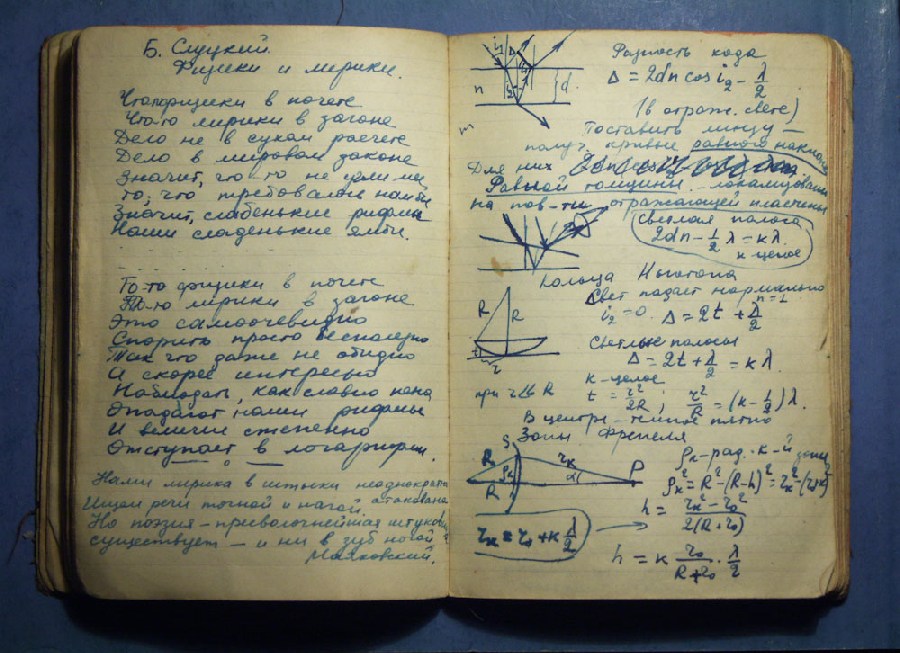 Б. Слуцкий.
Физики и лирики.
Что-то физики в почете
Что-то лирики в загоне
Дело не в сухом расчете
Дело в мировом законе
Значит, что-то не
то, что требовалось найти
Значит, слабенькие рифмы
Наши сладенькие ямбы.
То-то физики в почете
То-то лирики в загоне
Это самоочевидно
Спорить просто бесполезно
Так что даже не обидно
А скорее интересно
Наблюдать, как словно пена
Опадают наши рифмы
И величие степенно
Отступает в логарифмы.
Нами лирика в штыки неоднократно
Ищем речи точной и нагой атакована
Но поэзия – пресволочнейшая штуковина
существует – и ни в зуб ногой
Маяковский.
n
d
Разность хода
Δ = 2dn cos i₂ - λ/2
(в отраж. свете)
Поставить линзу –
получ. кривые равного наклона
Для них
Равной толщины локализованы
на пов-ти отражающей пластины
светлая полоса
2dn - 1/2 λ = kλ
k-целое
Кольца Ньютона
Свет падает нормально
n=1
i₂ = 0. Δ = 2t + λ/2
R R
r
Светлые полосы
Δ = 2t + λ/2 = kλ.
k-целое
при r ≪ R t = r²/2R ; r²/R = (k - 1/2) λ.
В центре – темное пятно
Зоны Френеля
S R R ρₖ rₖ P
ρₖ - рад. k-й зоны
ρₖ² = R² - (R-h)² = rₖ² - (r₀+h)²
h = (rₖ² - r₀²)/2(R+r₀)
rₖ = r₀ + k λ/2
h = k r₀/(R+r₀) · λ/2